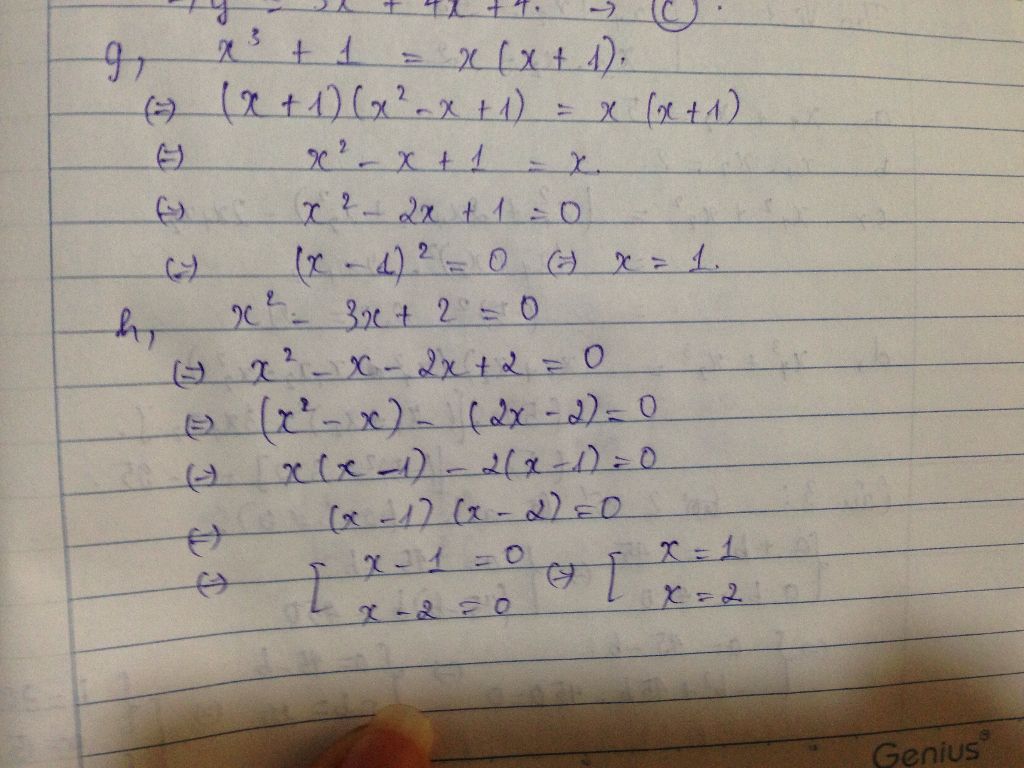 y = 3x + 4x + 4. → (C).
g, x³ + 1 = x(x+1).
⇔ (x+1)(x² - x + 1) = x(x+1)
⇔ x² - x + 1 = x.
⇔ x² - 2x + 1 = 0
⇔ (x - 1)² = 0 ⇔ x = 1.
h, x² - 3x + 2 = 0
⇔ x² - x - 2x + 2 = 0
⇔ (x² - x) - (2x - 2) = 0
⇔ x(x - 1) - 2(x - 1) = 0
⇔ (x - 1)(x - 2) = 0
⇔ [ x - 1 = 0 ⇔ [ x = 1
x - 2 = 0 x = 2
Genius®